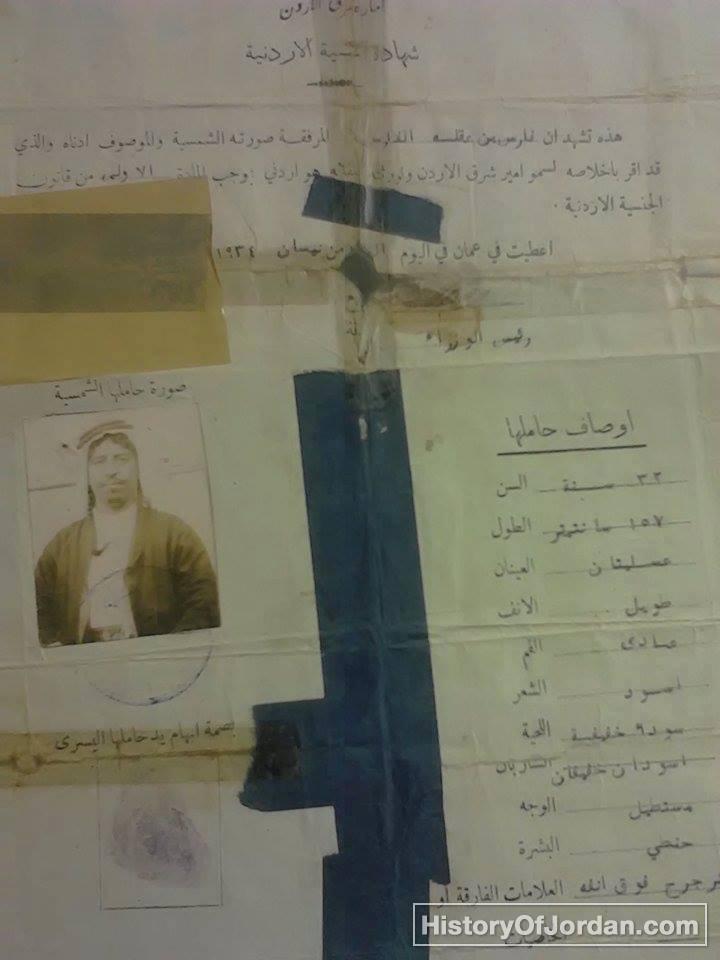 امارة شرق الاردن
شهادة الجنسية الاردنية
هذه تشهد ان فارس بن عقله المرفقة صورته الشمسية والموصوف ادناه والذي
قد اقر باخلاصه لسمو امير شرق الاردن هو اردني بموجب المادة الاولى من قانون
الجنسية الاردنية .
اعطيت في عمان في اليوم من نيسان ١٩٣٤
رئيس الوزراء
صورة حاملها الشمسية
اوصاف حاملها
السن ٣٢ سنة
الطول ١٥٧ سانتمتر
العينان عسليتان
الانف طويل
الفم عادي
الشعر اسود
اللحية سوداء خفيفة
الشاربان اسودان خفيفان
الوجه مستطيل
البشرة حنطي
العلامات الفارقة او جرح فوق انفه
بصمة ابهام يد حاملها اليسرى
HistoryOfJordan.com